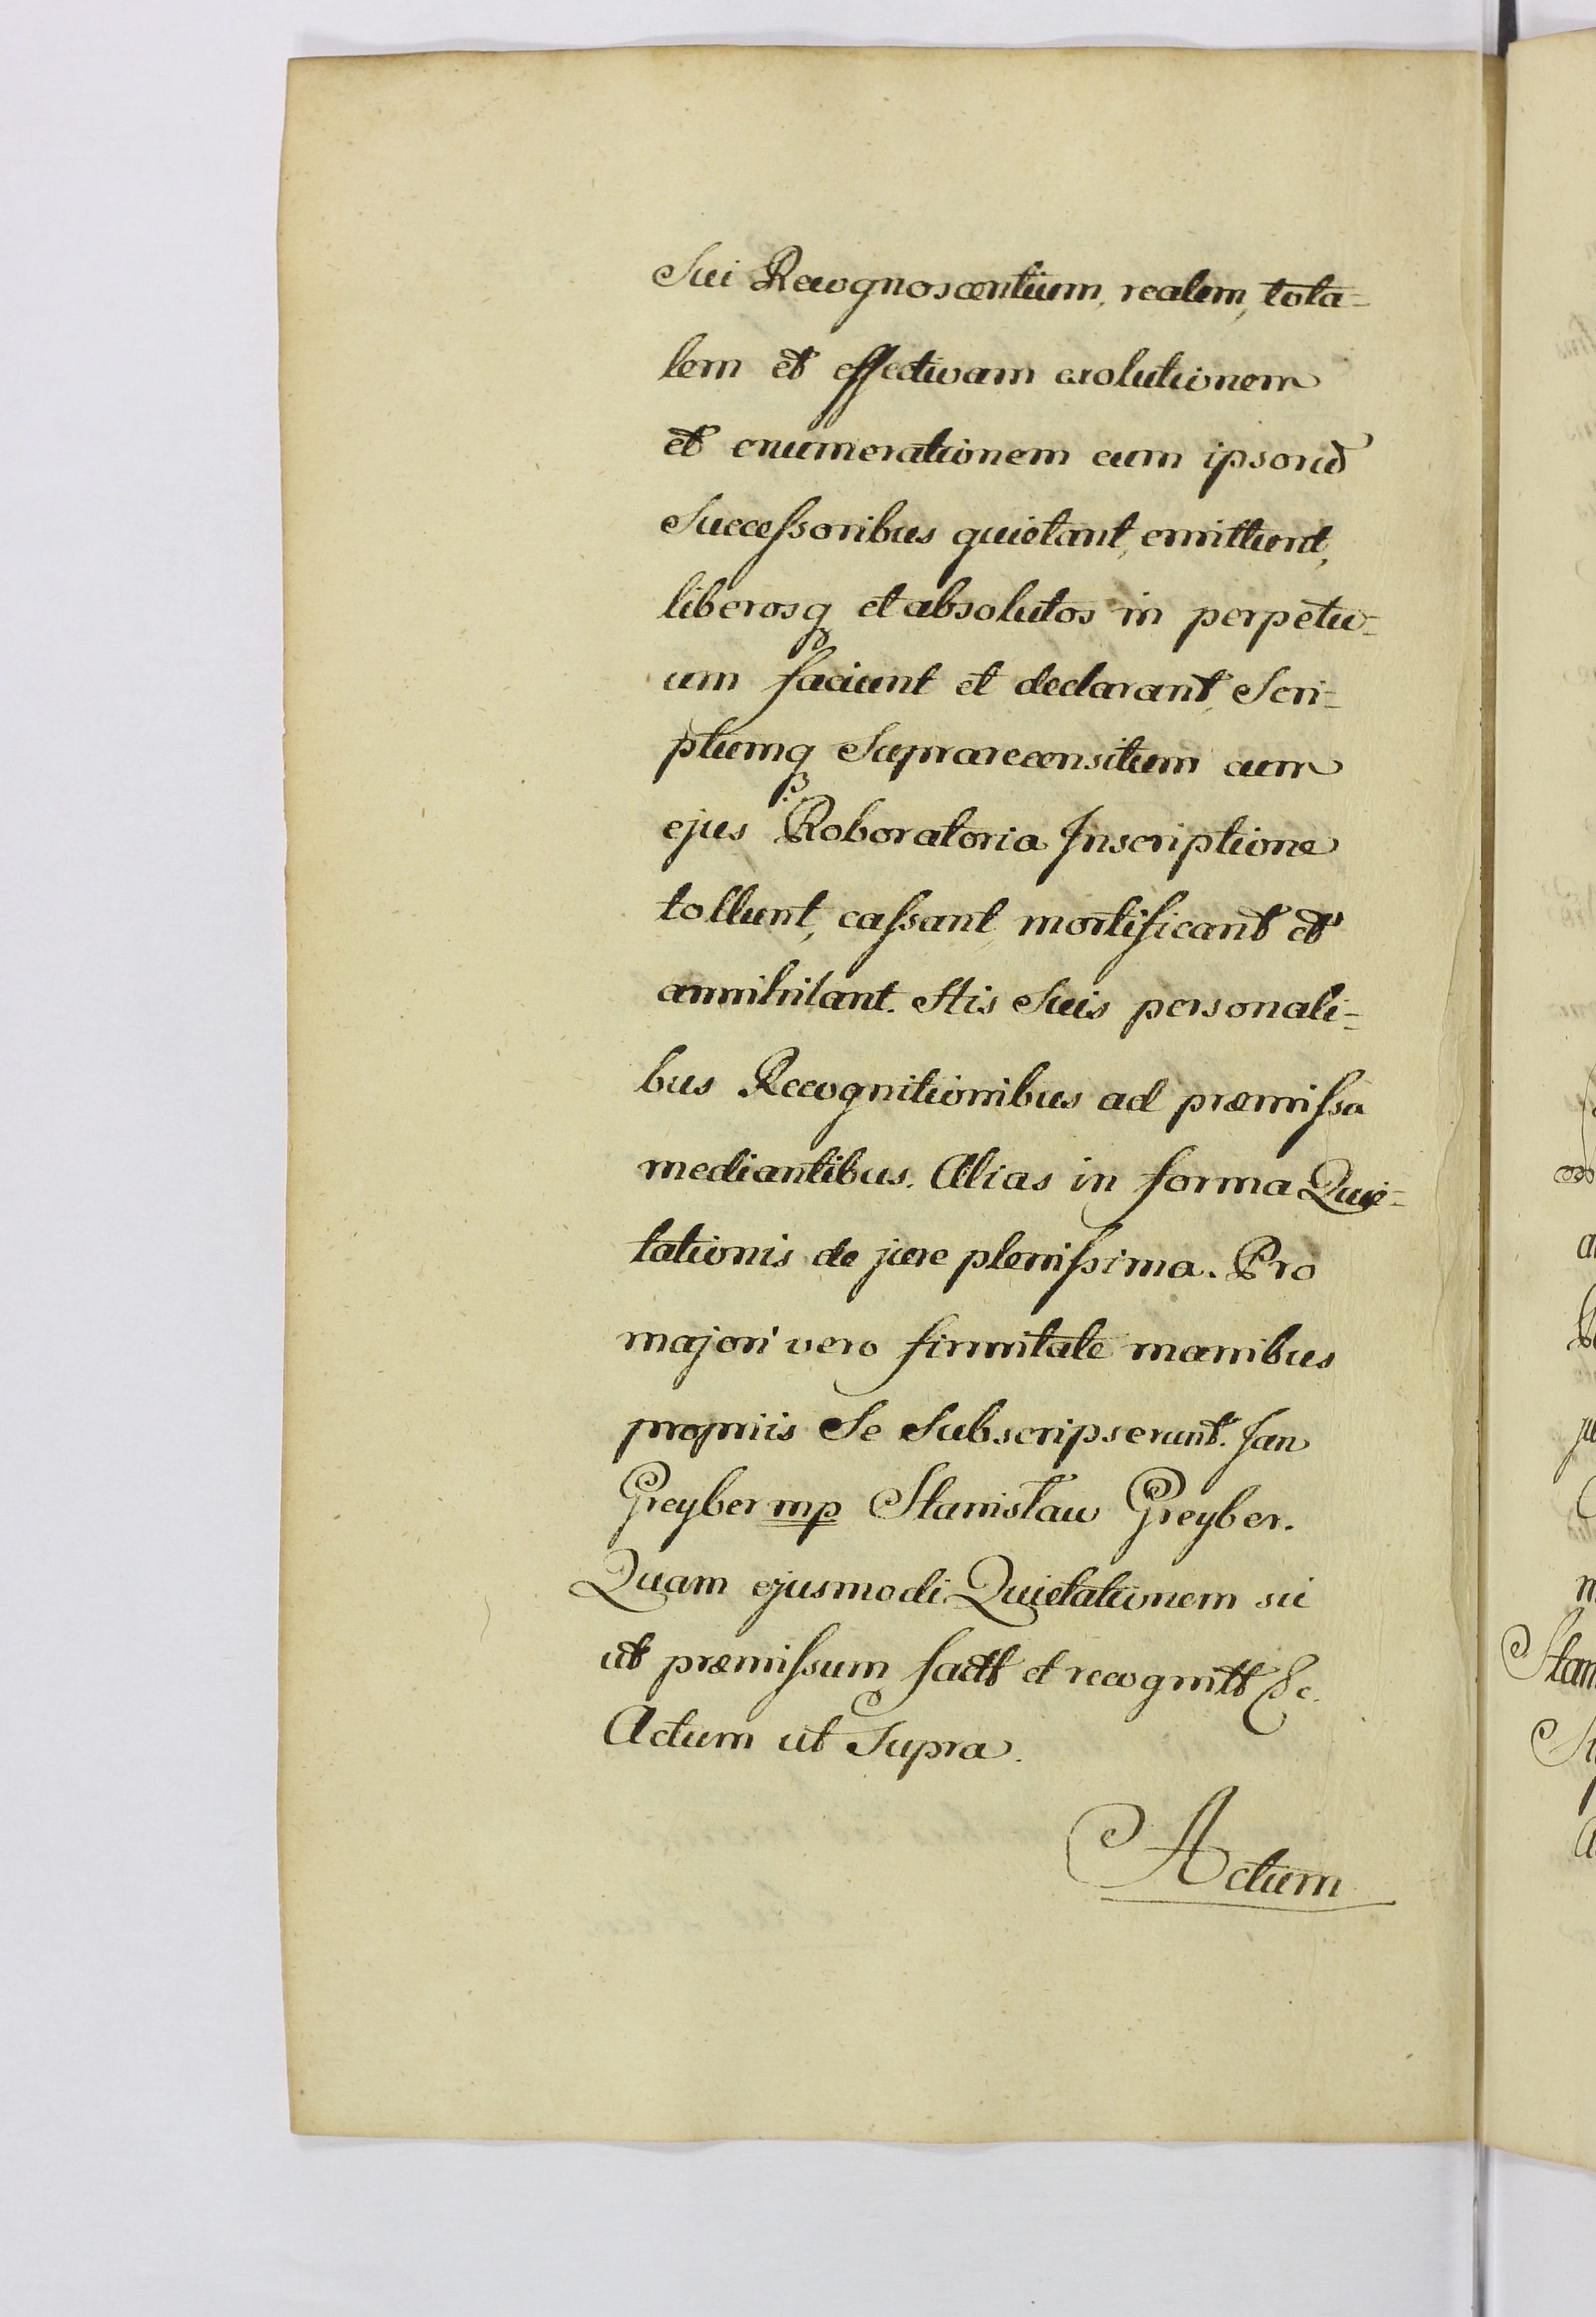 Sui Recognoscentium, realem, tota=
lem et effectivam exolutionem
et enumerationem cum ipsorū
Successoribus quietant, emittunt,
liberosq et absolutos in perpetu=
um faciunt et declarant, Scri=
ptumq Suprarecensitum cum
ejus Roboratoria Inscriptione
tollunt, cassant, mortificant et
annihilant. His Suis personali=
bus Recognitionibus ad præmissa
mediantibus. Alias in forma Quie=
tationis de jure plenissima. Pro
majori vero firmitate manibus
propriis Se Subscripserunt. Jan
Greyber mp Stanisław Greyber.
Quam ejusmodi Quietationem sic
ut præmissum factt et recognitt &c.
Actum ut Supra.
Actum